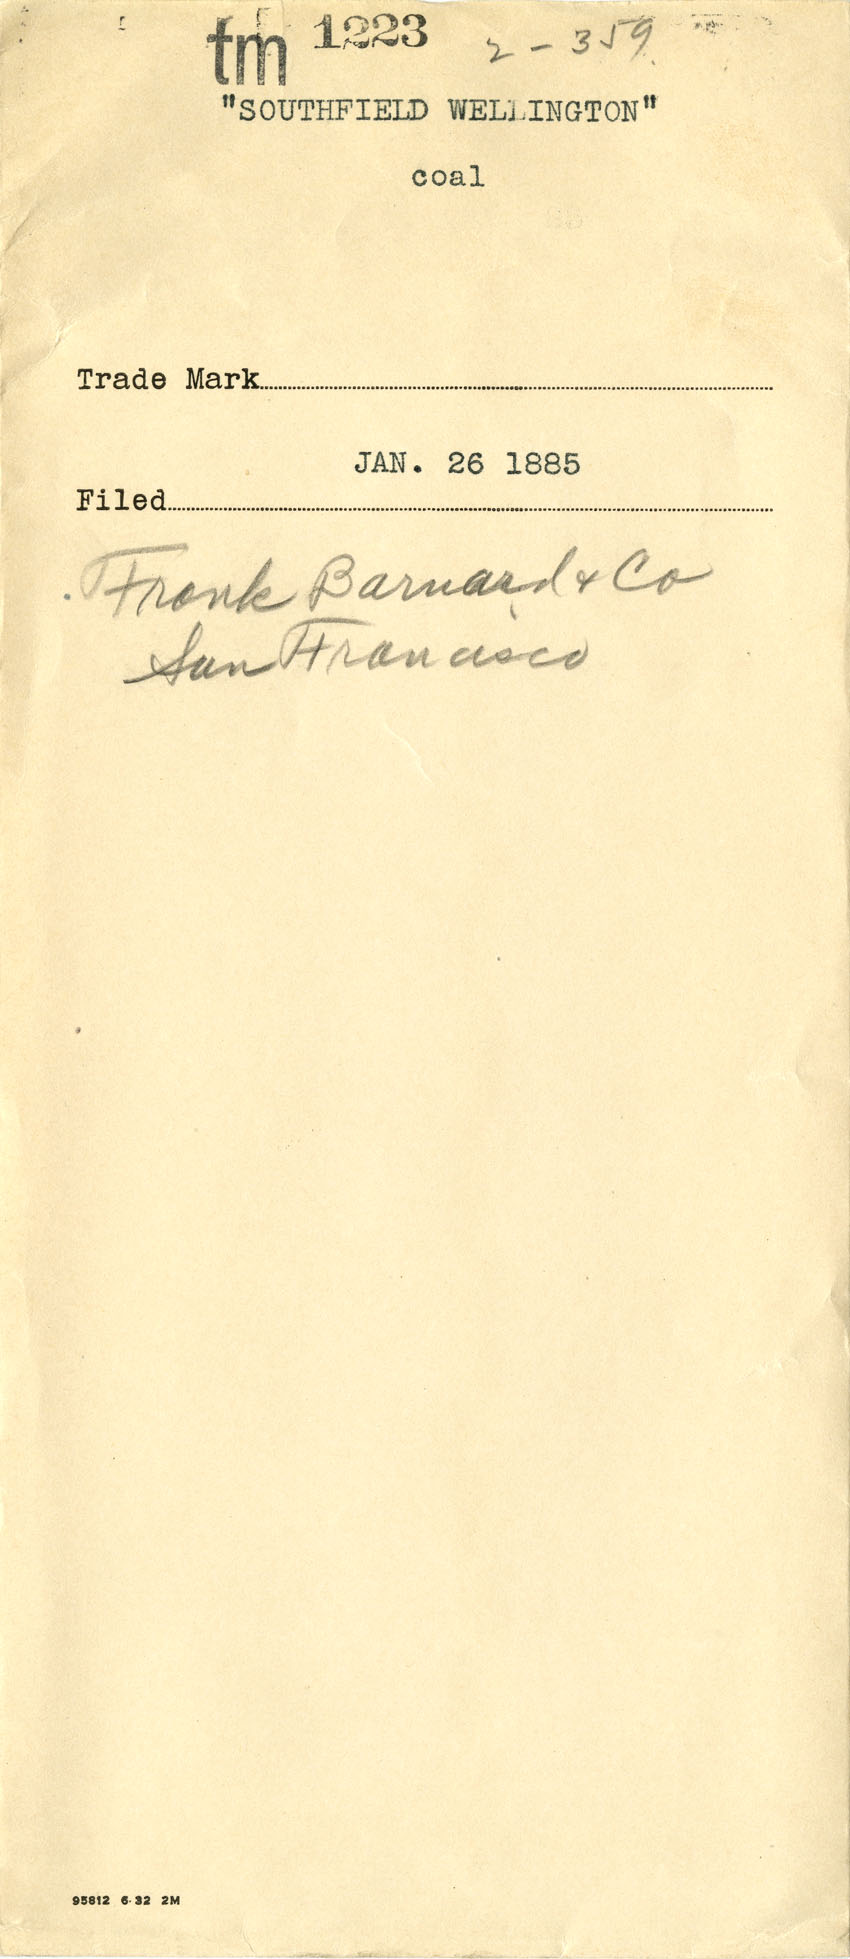 tm 1223 2-359
"SOUTHFIELD WELLINGTON"
coal
Trade Mark
JAN. 26 1885
Filed
Frank Barnard & Co
San Francisco
95812 6-32 2M